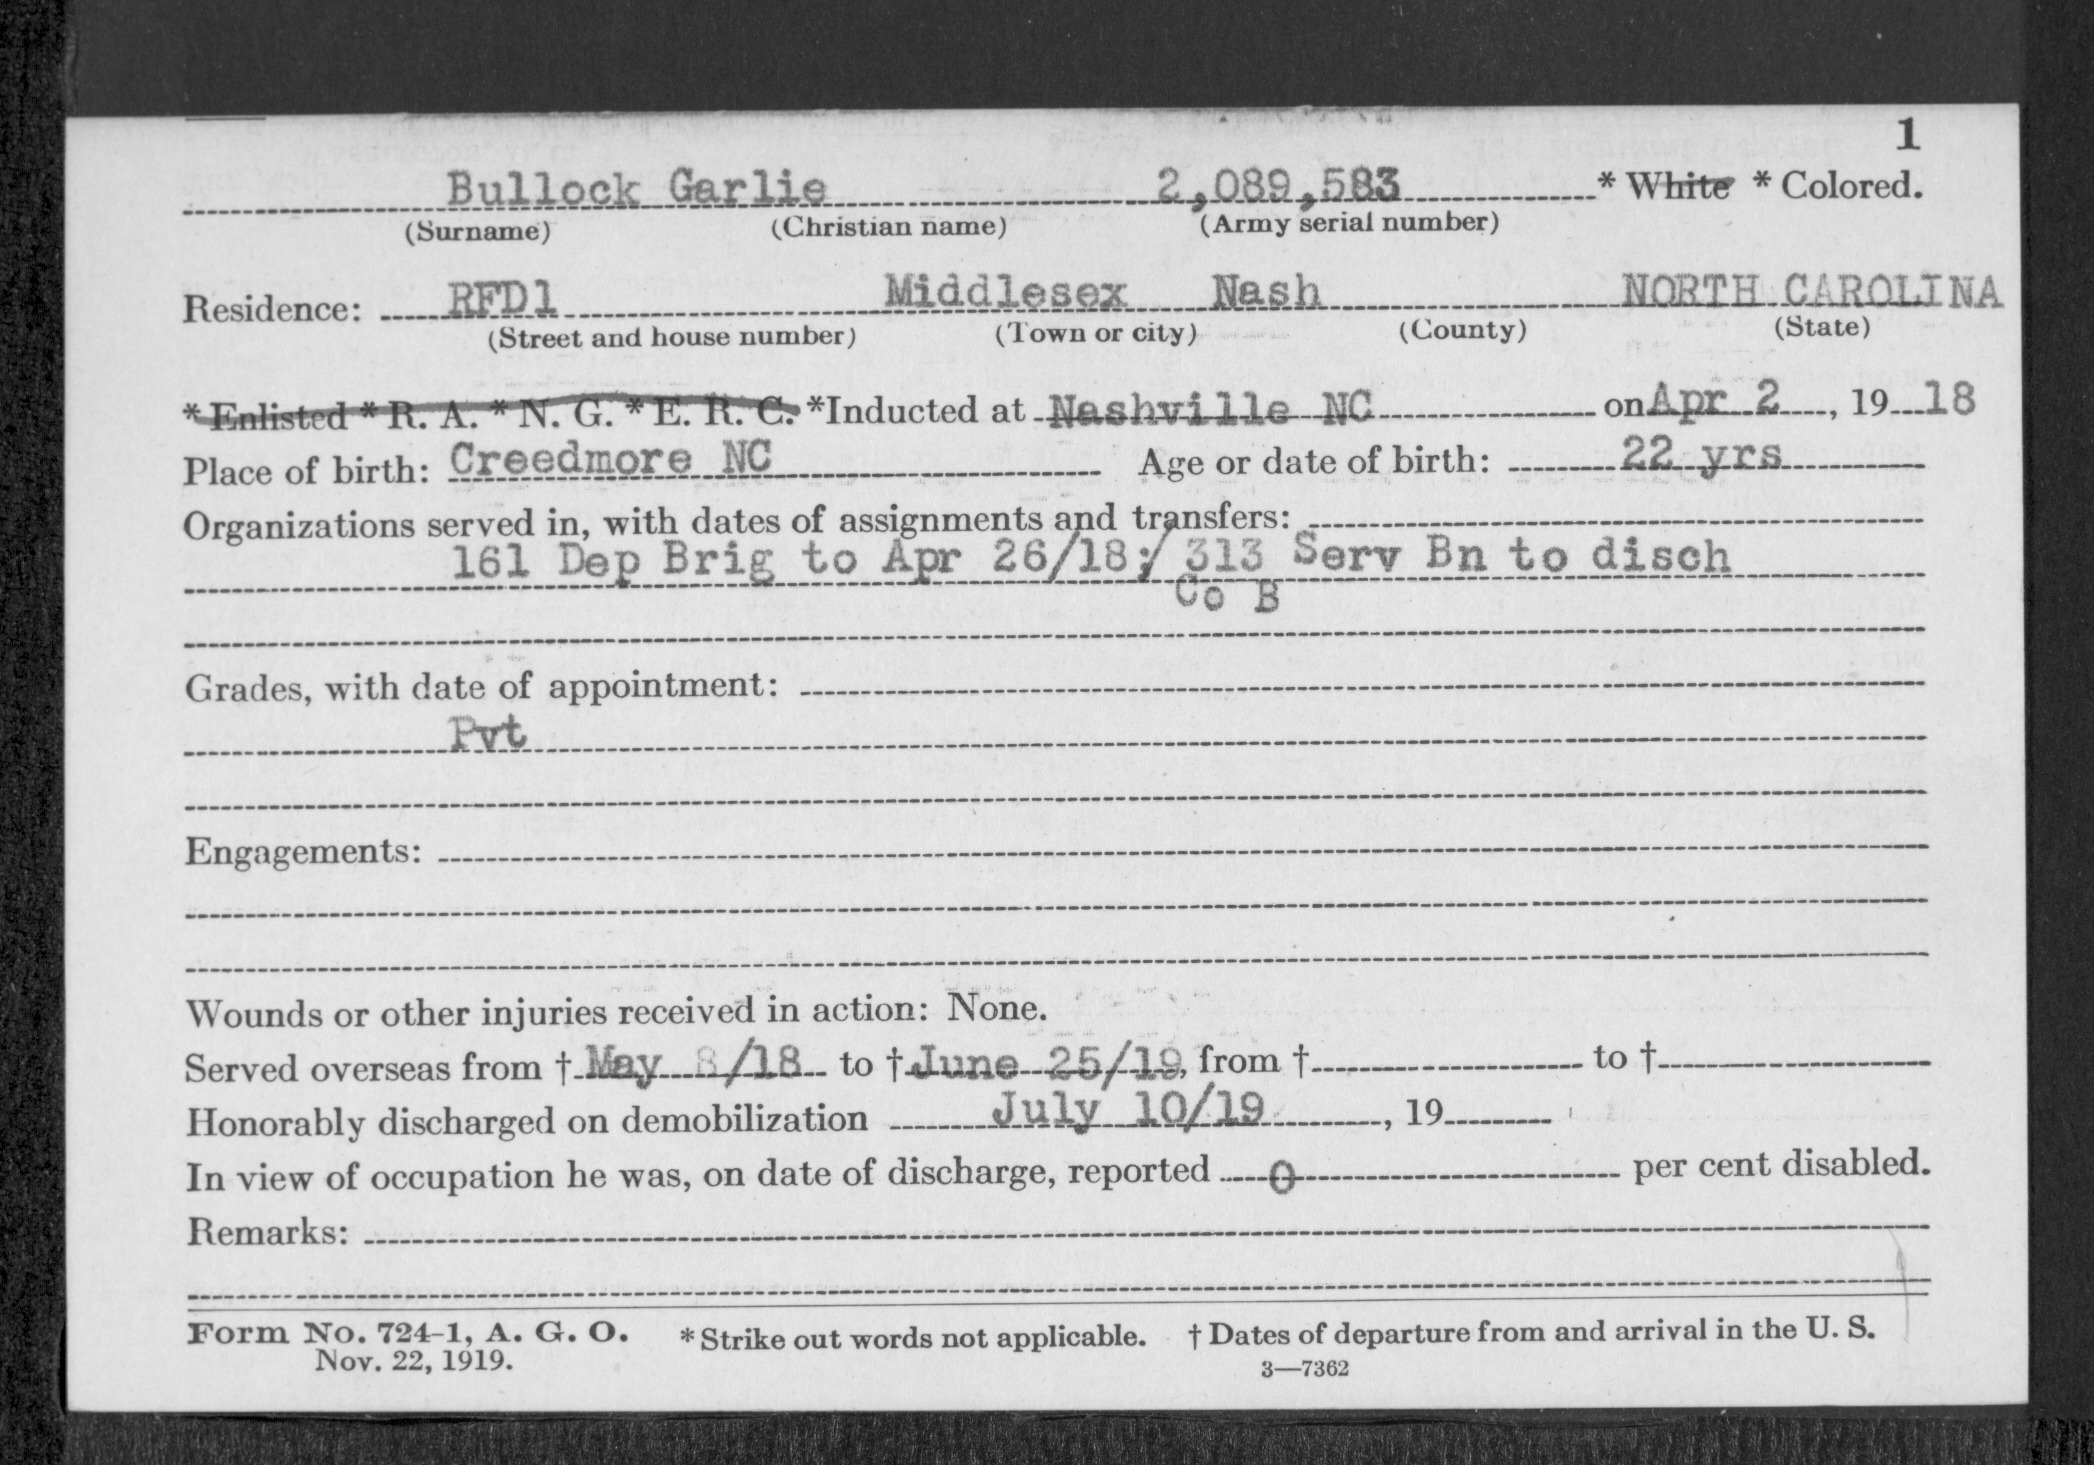 1
Bullock Garlie 2,089,583 * White * Colored.
(Surname) (Christian name) (Army serial number)
Residence: RFD1 Middlesex Nash NORTH CAROLINA
(Street and house number) (Town or city) (County) (State)
* Enlisted * R. A. * N. G. * E. R. C. *Inducted at Nashville NC on Apr 2, 19 18
Place of birth: Creedmore NC Age or date of birth: 22 yrs
Organizations served in, with dates of assignments and transfers:
161 Dep Brig to Apr 26/18;/ 313 Serv Bn to disch
Co B
Grades, with date of appointment:
Pvt
Engagements:
Wounds or other injuries received in action: None.
Served overseas from † May 8/18 to † June 25/19, from † to †
Honorably discharged on demobilization July 10/19, 19
In view of occupation he was, on date of discharge, reported 0 per cent disabled.
Remarks:
Form No. 724-1, A. G. O. * Strike out words not applicable. † Dates of departure from and arrival in the U. S.
Nov. 22, 1919. 3—7362